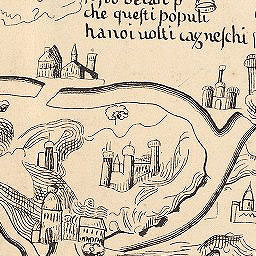 che questi populi
hanoi uolti cagneschi